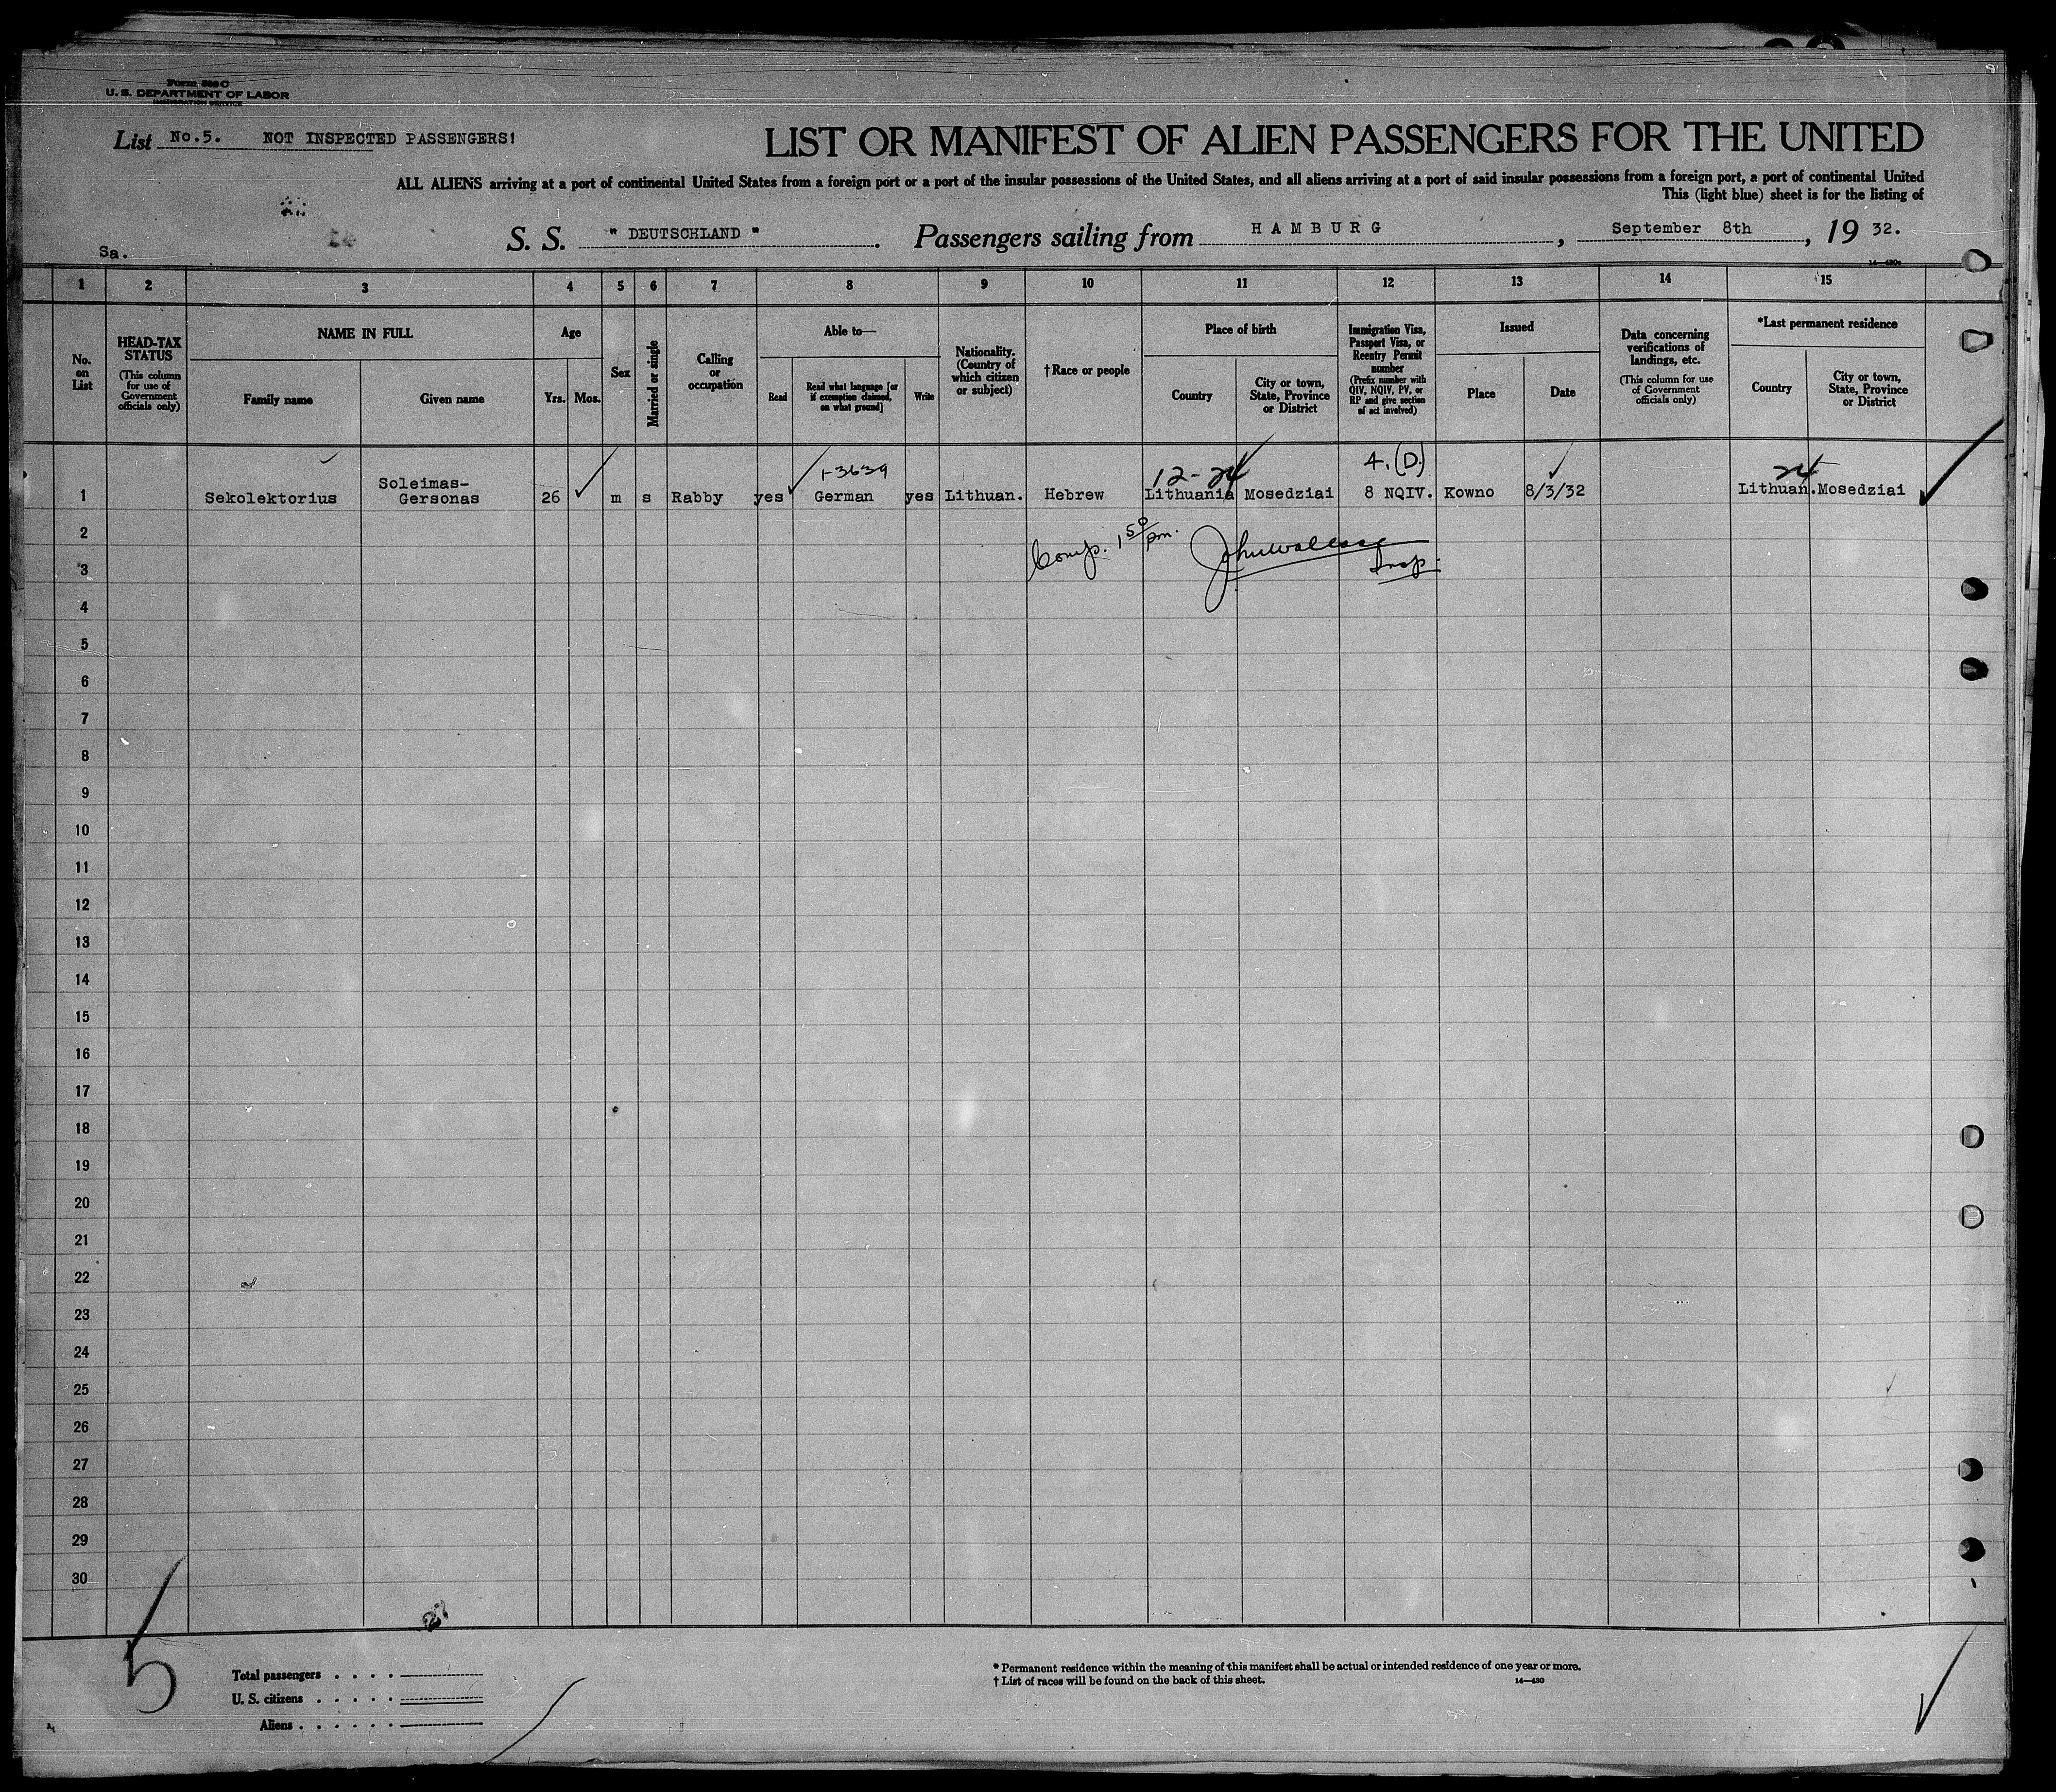 Form 500 C
U. S. DEPARTMENT OF LABOR
IMMIGRATION SERVICE
List No.5. NOT INSPECTED PASSENGERS!
LIST OR MANIFEST OF ALIEN PASSENGERS FOR THE UNITED
ALL ALIENS arriving at a port of continental United States from a foreign port or a port of the insular possessions of the United States, and all aliens arriving at a port of said insular possessions from a foreign port, a port of continental United
This (light blue) sheet is for the listing of
S. S. " DEUTSCHLAND " . Passengers sailing from HAMBURG , September 8th , 19 32.
Sa.
1 2 3 4 5 6 7 8 9 10 11 12 13 14 15
No. on List
HEAD-TAX STATUS
(This column for use of Government officials only)
NAME IN FULL
Family name Given name
Age
Yrs. Mos.
Sex
Married or single
Calling or occupation
Able to—
Read Read what language [or if exemption claimed, on what ground] Write
Nationality. (Country of which citizen or subject)
†Race or people
Place of birth
Country City or town, State, Province or District
Immigration Visa, Passport Visa, or Reentry Permit number
(Prefix number with QIV, NQIV, PV, or RP and give section of act involved)
Issued
Place Date
Data concerning verifications of landings, etc.
(This column for use of Government officials only)
*Last permanent residence
Country City or town, State, Province or District
1-3639 12-24 4.(D.) 24
Soleimas-
1 Sekolektorius Gersonas 26 m s Rabby yes German yes Lithuan. Hebrew Lithuania Mosedziai 8 NQIV. Kowno 8/3/32 Lithuan. Mosedziai
2
Comp. 1 50 pm. John Wallace
3
Insp.
4
5
6
7
8
9
10
11
12
13
14
15
16
17
18
19
20
21
22
23
24
25
26
27
28
29
30
5
Total passengers . . . .
U. S. citizens . . . . .
Aliens . . . . . .
* Permanent residence within the meaning of this manifest shall be actual or intended residence of one year or more.
† List of races will be found on the back of this sheet. 14—430